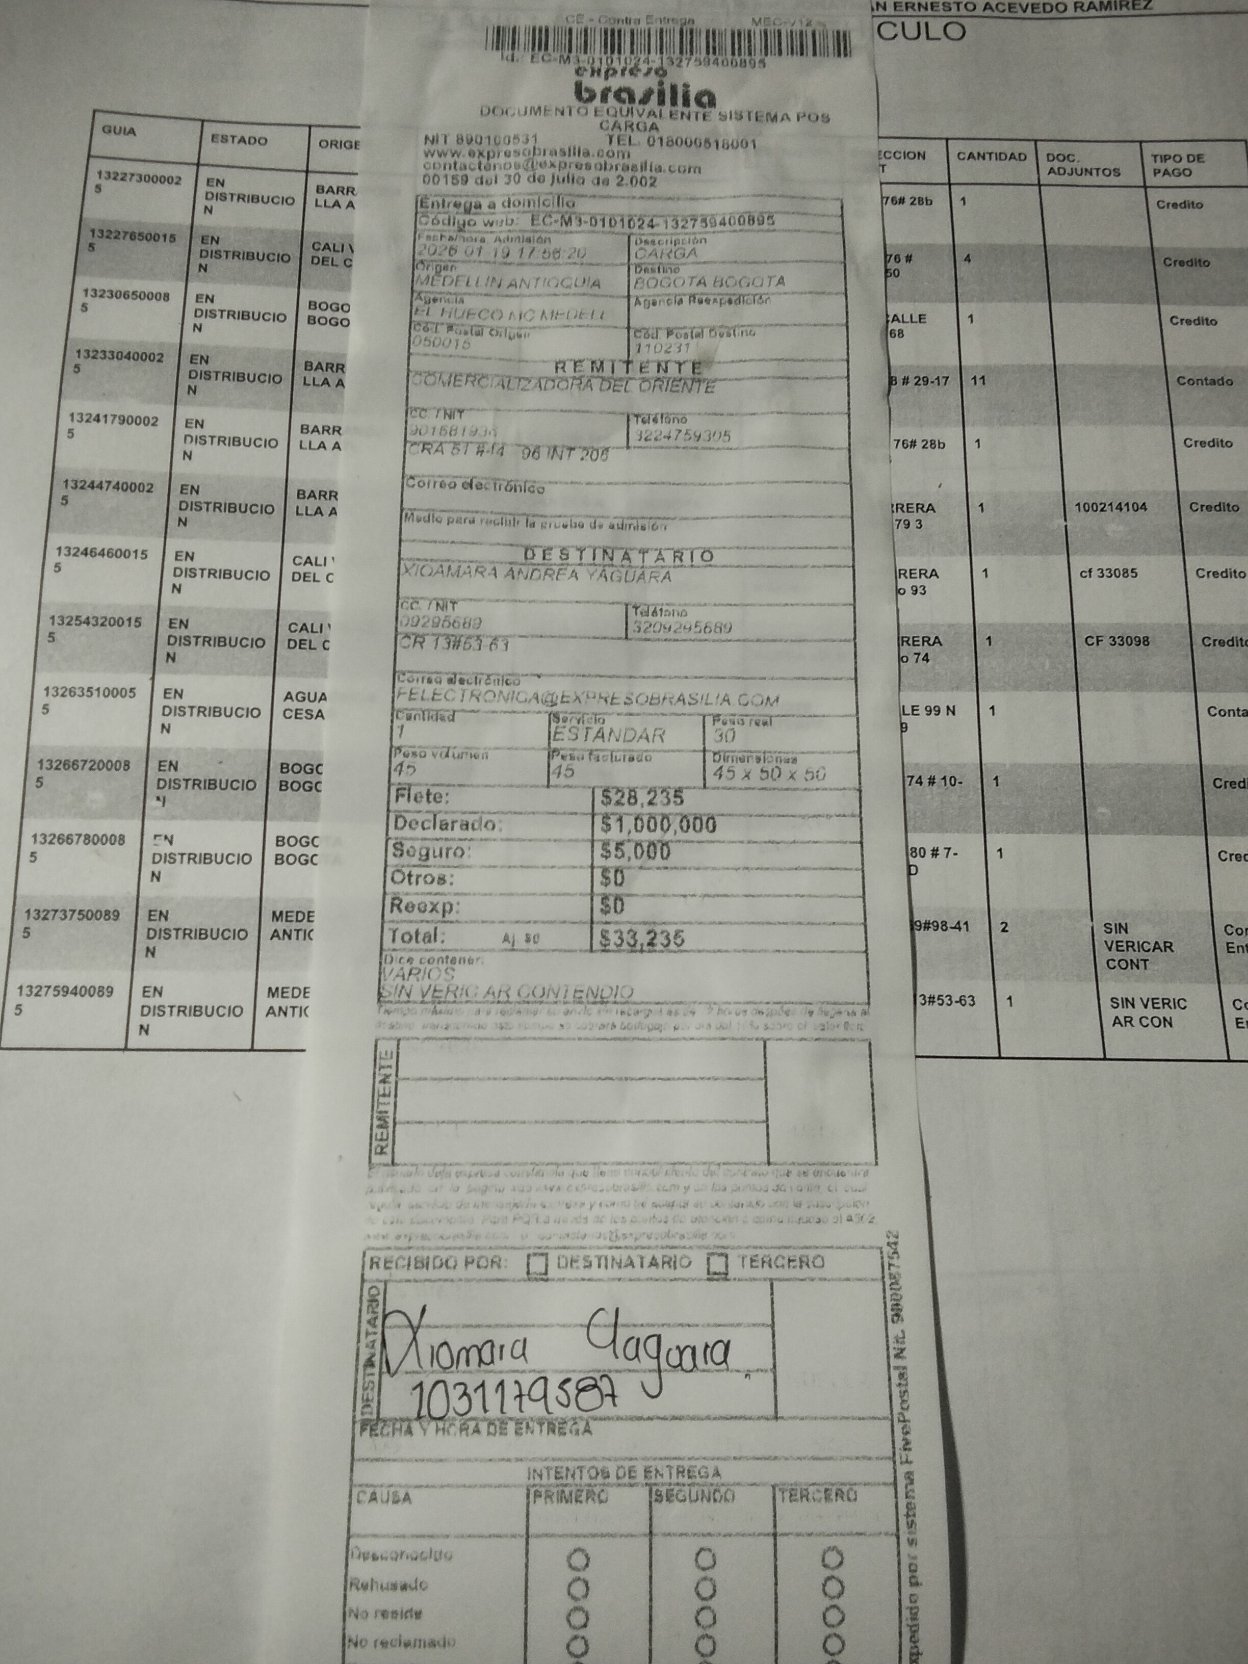 AN ERNESTO ACEVEDO RAMIREZ
CULO
CE - Contra Entrega MEC-V12
Id.: EC-M3-0101024-132759400895
expreso
brasilia
DOCUMENTO EQUIVALENTE SISTEMA POS
CARGA
NIT 890100531 TEL. 018000518001
www.expresobrasilia.com
contactenos@expresobrasilia.com
00159 del 30 de julio de 2.002
Entrega a domicilio
Código web: EC-M3-0101024-132759400895
Fecha/hora Admisión Descripción
2026 01 19 17:56:20 CARGA
Origen Destino
MEDELLIN ANTIOQUIA BOGOTA BOGOTA
Agencia Agencia Reexpedición
EL HUECO NC MEDELL
Cód. Postal Origen Cód. Postal Destino
050015 110231
REMITENTE
COMERCIALIZADORA DEL ORIENTE
CC. / NIT Teléfono
3224759305
CRA 51 #44 96 INT 206
Correo electrónico
Medio para recibir la prueba de admisión
DESTINATARIO
XIOAMARA ANDREA YAGUARA
CC. / NIT Teléfono
09295689 3209295689
CR 13#53-63
Correo electrónico
FELECTRONICA@EXPRESOBRASILIA.COM
Cantidad Servicio Peso real
1 ESTANDAR 30
Peso volumen Peso facturado Dimensiones
45 45 45 x 50 x 50
Flete: $28,235
Declarado: $1,000,000
Seguro: $5,000
Otros: $0
Reexp: $0
Total: Aj $0 $33,235
Dice contener:
VARIOS
SIN VERIC AR CONTENDIO
REMITENTE
RECIBIDO POR: DESTINATARIO TERCERO
DESTINATARIO
Xiomara Yaguara
1031179587
FECHA Y HORA DE ENTREGA
INTENTOS DE ENTREGA
CAUSA PRIMERO SEGUNDO TERCERO
Desconocido
Rehusado
No reside
No reclamado
xpedido por sistema FivePostal Nit. 900087542
GUIA ESTADO ORIGE
13227300002
5 EN
DISTRIBUCIO
N BARR
LLA A
13227650015
5 EN
DISTRIBUCIO
N CALI V
DEL C
13230650008
5 EN
DISTRIBUCIO
N BOGO
BOGO
13233040002
5 EN
DISTRIBUCIO
N BARR
LLA A
13241790002
5 EN
DISTRIBUCIO
N BARR
LLA A
13244740002
5 EN
DISTRIBUCIO
N BARR
LLA A
13246460015
5 EN
DISTRIBUCIO
N CALI
DEL C
13254320015
5 EN
DISTRIBUCIO
N CALI
DEL C
13263510005
5 EN
DISTRIBUCIO
N AGUA
CESA
13266720008
5 EN
DISTRIBUCIO
N BOGC
BOGC
13266780008
5 EN
DISTRIBUCIO
N BOGC
BOGC
13273750089
5 EN
DISTRIBUCIO
N MEDE
ANTIC
13275940089
5 EN
DISTRIBUCIO
N MEDE
ANTIC
ECCION
T CANTIDAD DOC.
ADJUNTOS TIPO DE
PAGO
76# 28b 1 Credito
76 #
50 4 Credito
CALLE
68 1 Credito
B # 29-17 11 Contado
76# 28b 1 Credito
RERA
79 3 1 100214104 Credito
RERA
o 93 1 cf 33085 Credito
RERA
o 74 1 CF 33098 Credito
LE 99 N
9 1 Conta
74 # 10- 1 Credi
80 # 7-
D 1 Cred
9#98-41 2 SIN
VERICAR
CONT Con
Ent
3#53-63 1 SIN VERIC
AR CON Co
Er